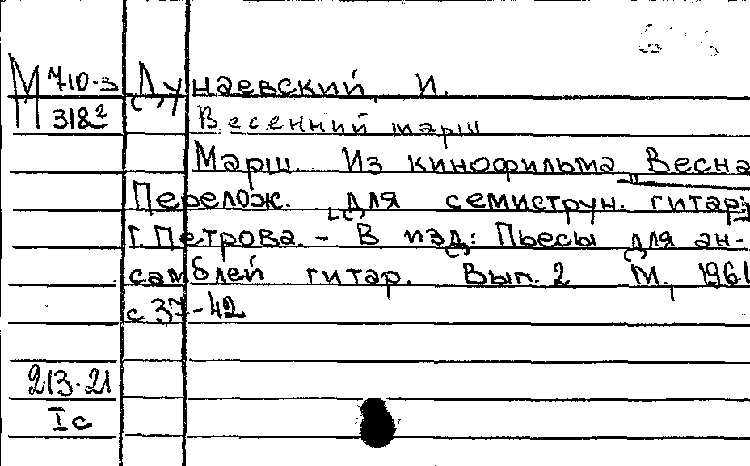 М 710-3 Дунаевский, И.
318² Весенний марш
Марш. Из кинофильма "Весна
Перелож. для семиструн. гитар
Г. Петрова. - В изд: Пьесы для ан-
самблей гитар. Вып. 2 М., 1961
с 37-42
213-21
Iс